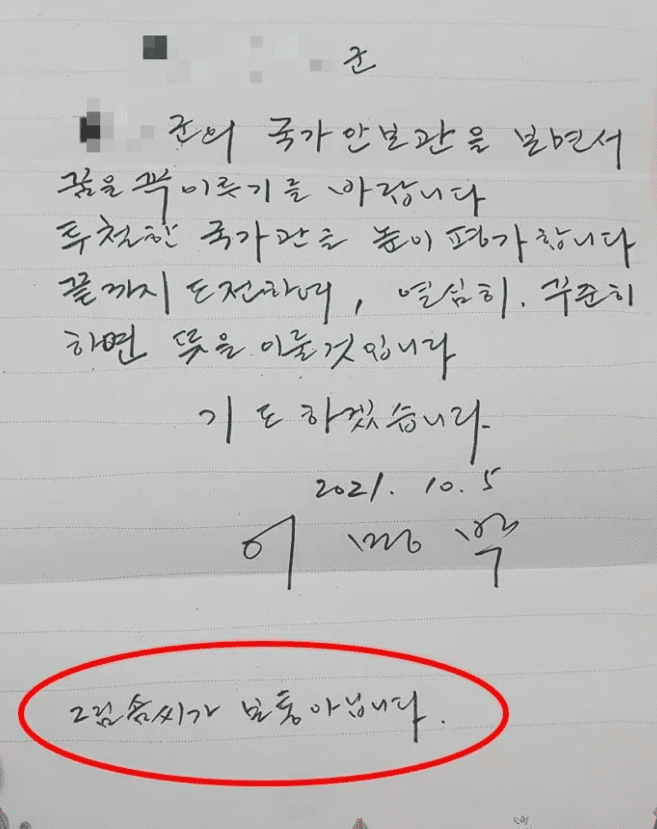 군
군의 국가안보관을 보면서
꿈을 꼭 이룻기를 바랍니다
투철한 국가관을 높이 평가합니다
끝까지 도전하여, 열심히. 꾸준히
하면 뜻을 이룰것입니다
기도하겠습니다.
2021. 10. 5
이
그림솜씨가 보통아닙니다.